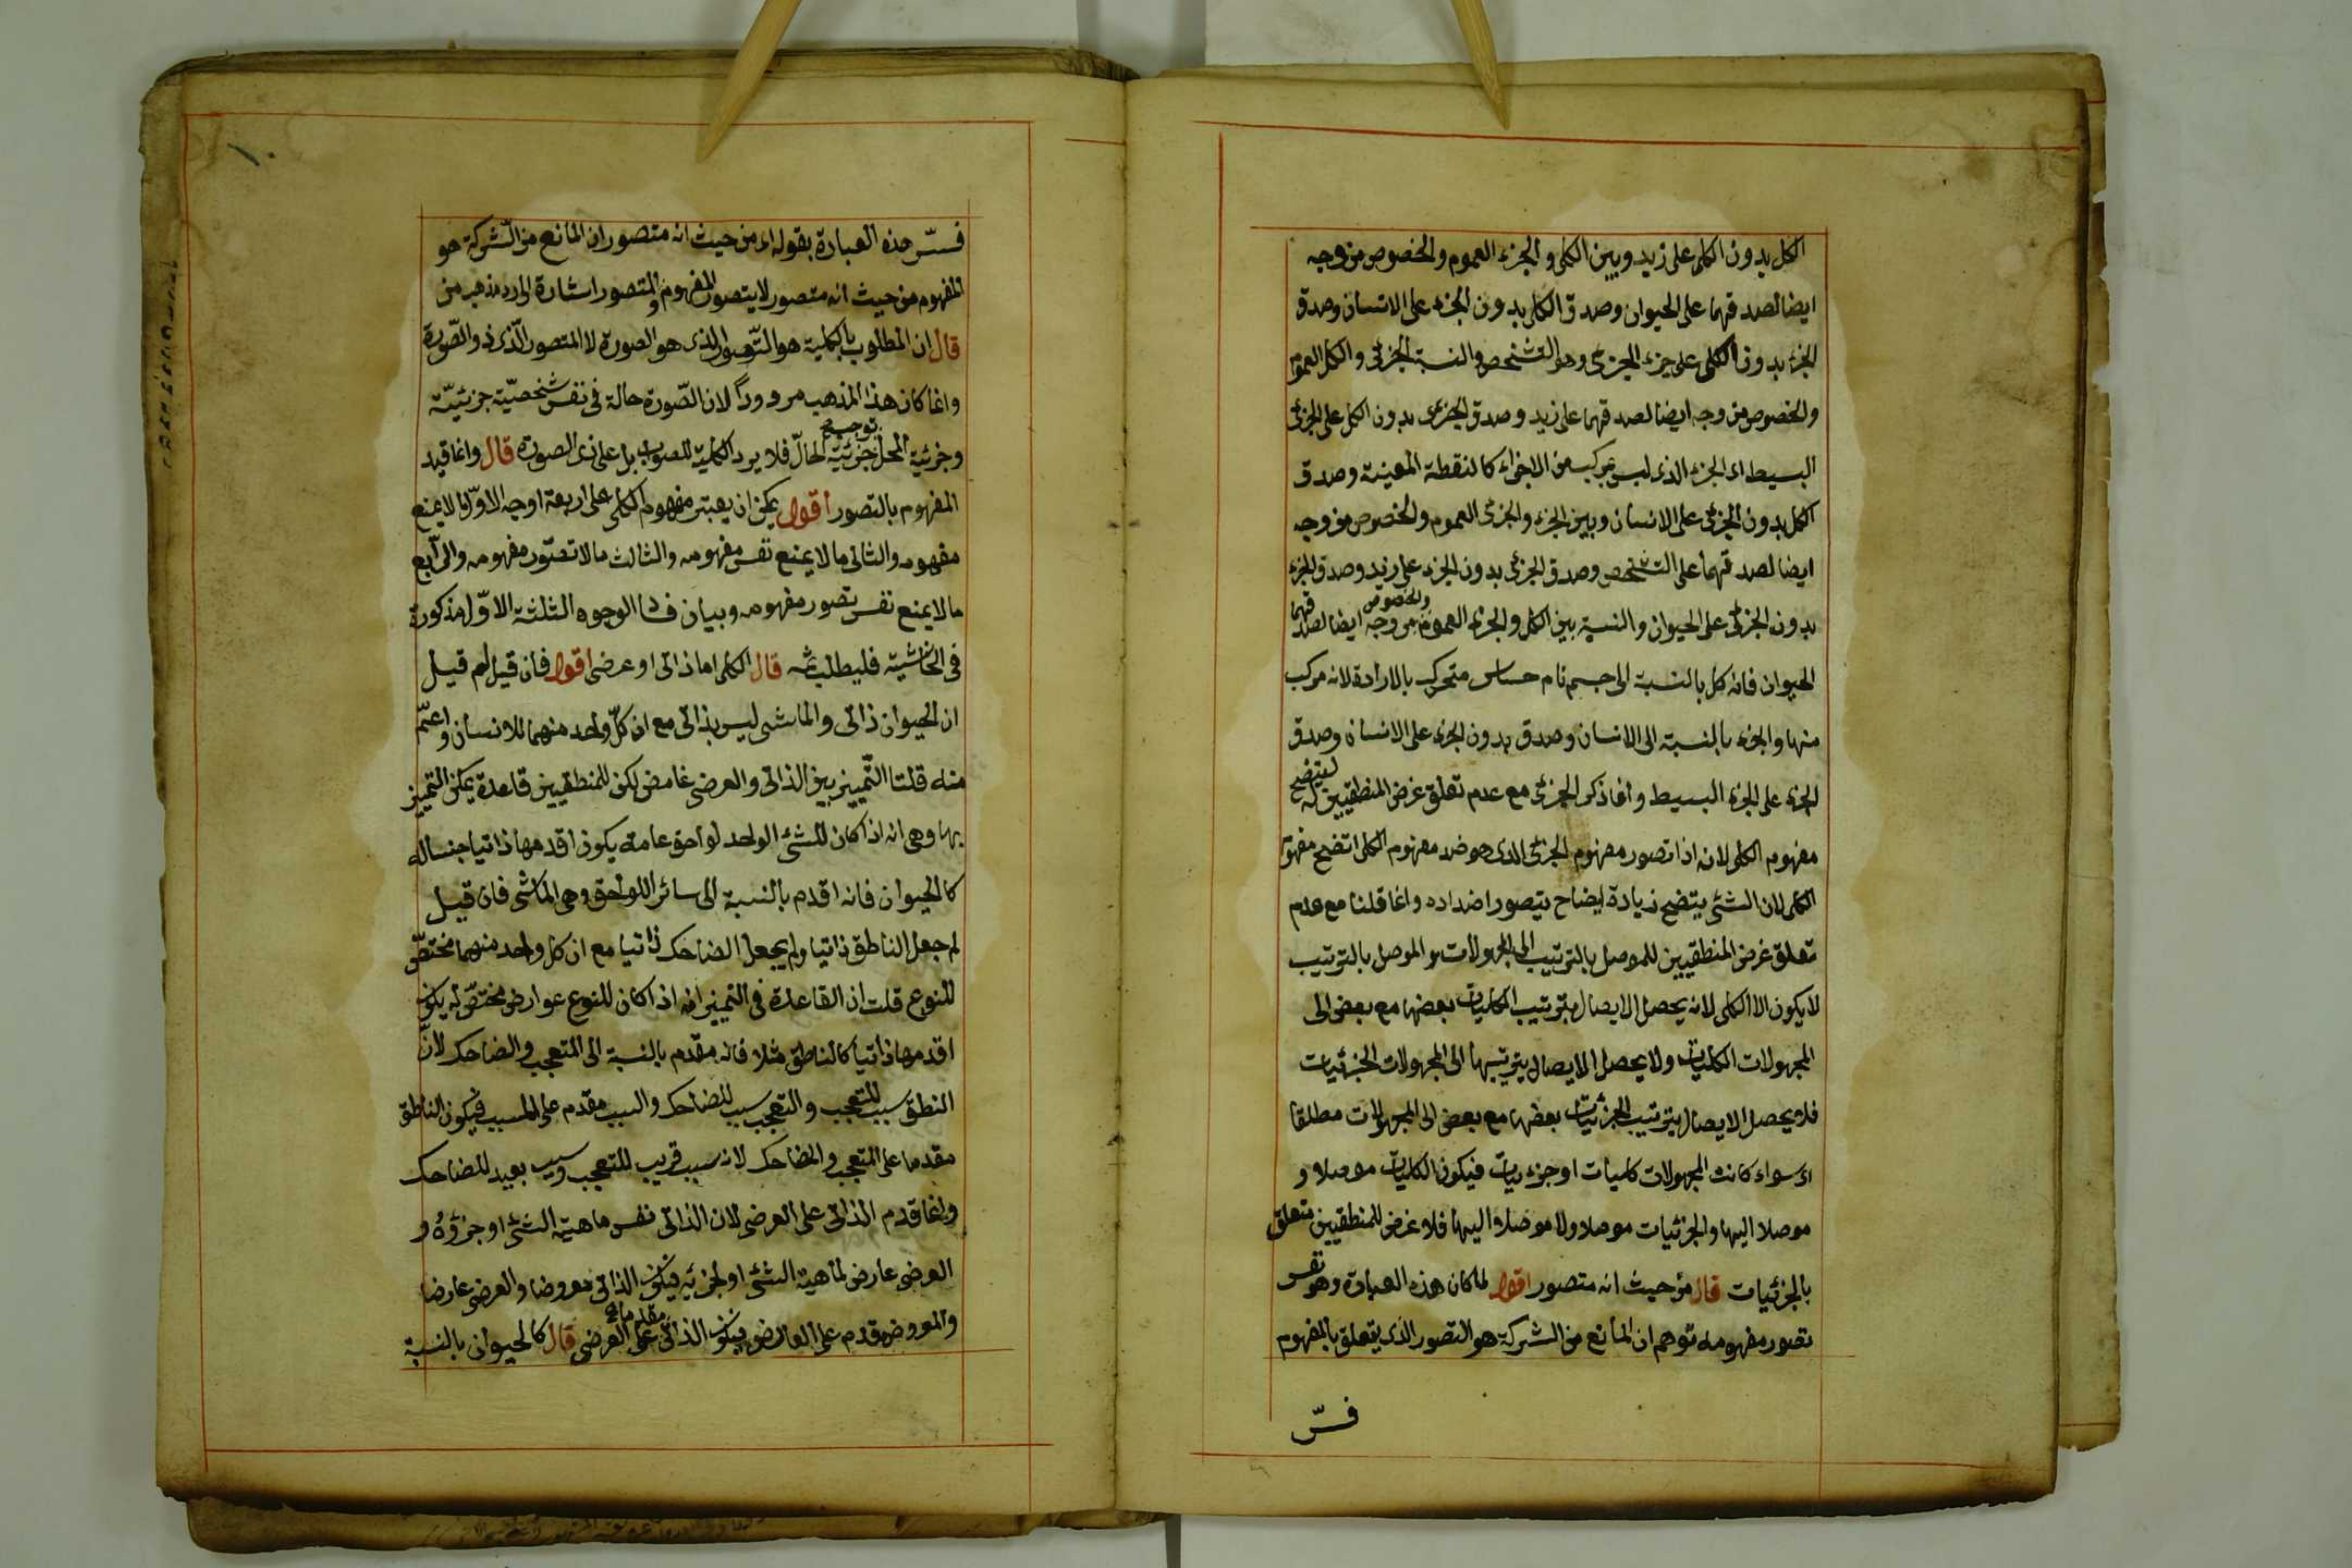 الكل بدون الكلي على زيد وبين الكلي والجزء العموم والخصوص من وجه
ايضا لصدقهما على الحيوان وصدق الكلي بدون الجزء على الانسان وصدق
الجزء بدون الكلي على جزء الجزئي وهو التشخص والنسبة الجزئي والكل العموم
والخصوص من وجه ايضا لصدقهما على زيد وصدق الجزئي بدون الكل على الجزئي
البسيط اى الجزء الذى ليس بمركب من الاجزاء كالنقطة المعينة وصدق
الكل بدون الجزئي على الانسان وبين الجزء والجزئى العموم والخصوص من وجه
ايضا لصدقهما على التشخص وصدق الجزئى بدون الجزء على زيد وصدق الجزء
بدون الجزئى على الحيوان والنسبة بين الكل والجزء العموم والخصوص من وجه ايضا لصدقهما
الحيوان فانه كل بالنسبة الى جسم نام حساس متحرك بالارادة لانه مركب
منها والجزء بالنسبة الى الانسان وصدق بدون الجزء على الانسان وصدق
الجزء على الجزء البسيط وانما ذكر الجزئى مع عدم تعلق غرض المنطقيين له ليتضح
مفهوم الكلى لانه اذا تصور مفهوم الجزئى الذى هو ضد مفهوم الكلى اتضح مفهوم
الكلى لان الشئ يتضح زيادة ايضاح بتصور اضداده وانما قلنا مع عدم
تعلق غرض المنطقيين للموصل بالترتيب الى المجهولات والموصل بالترتيب
لا يكون الا الكلى لانه يحصل الايصال بترتيب الكليات بعضها مع بعض الى
المجهولات الكليات ولا يحصل الايصال بترتيبها الى المجهولات الجزئيات
فلا يحصل الايصال بترتيب الجزئيات بعضها مع بعض الى المجهولات مطلقا
اى سواء كانت المجهولات كليات او جزءيات فيكون الكليات موصلا و
موصلا اليها والجزئيات موصلا ولا موصلا اليها فلا غرض للمنطقيين متعلق
بالجزئيات قال من حيث انه متصور اقول لما كان هذه العبارة وهو نفس
تصور مفهومه توهم ان المانع من الشركة هو التصور الذى يتعلق بالمفهوم
فسّر
١٠
فسّر هذه العبارة بقوله اى من حيث انه متصور ان المانع من الشركة هو
المفهوم من حيث انه متصور لا بتصور المفهوم والمتصور اشارة الى رد مذهب من
قال ان المطلوب بالكلية هو التصور الذى هو الصورة لا المتصور الذى ذو الصّورة
وانما كان هذا المذهب مردودا لان الصّورة حالة فى نفس شخصيّة جزئيّة
وجزئية المحل توجب جزئيّة الحالّ فلا يرد الكلية للصورة بل على ذى الصورة قال وانما قيد
المفهوم بالتصور اقول يمكن ان يعتبر مفهوم الكلى على اربعة اوجه الاوّل ما لا يمنع
مفهومه والثانى ما لا يمنع نفس مفهومه والثالث ما لا تصوّر مفهومه والرّابع
ما لا يمنع نفس تصور مفهومه وبيان فساد الوجوه الثلثة الاوّل مذكورة
فى الحاشية فليطلب ثمه قال الكلى اما ذاتى او عرضى اقول فان قيل لم قيل
ان الحيوان ذاتى والماشى ليس بذاتى مع ان كلّ واحد منهما للانسان واعمّ
منه قلنا التّمييز بين الذاتى والعرضى غامض لكن للمنطقيين قاعدة يمكن التمييز
بها وهى انه اذا كان للشئ الواحد لواحق عامة يكون اقدمها ذاتيا جنسا له
كالحيوان فانه اقدم بالنسبة الى سائر اللواحق وهى الماشى فان قيل
لم جعل الناطق ذاتيا ولم يجعل الضاحك ذاتيا مع ان كل واحد منهما مختصّ
للنوع قلت ان القاعدة فى التمييز انه اذا كان للنوع عوارض مختصّة له يكون
اقدمها ذاتيا كالناطق مثلا فانه مقدم بالنسبة الى المتعجب والضاحك لانّ
النطق سبب للتعجب والتعجب سبب للضاحك والسبب مقدم على المسبب فيكون الناطق
مقدما على المتعجب والضاحك لانه سبب قريب للتعجب وسبب بعيد للضاحك
وانما قدم الذاتى على العرضى لان الذاتى نفس ماهية الشئ او جزؤه و
العرضى عارض لماهية الشئ او لجزئيه فيكون الذاتى معروضا والعرضى عارضا
والمعروض مقدم على العارض فيكون الذاتى مقدما على العرضى قال كالحيوان بالنسبة